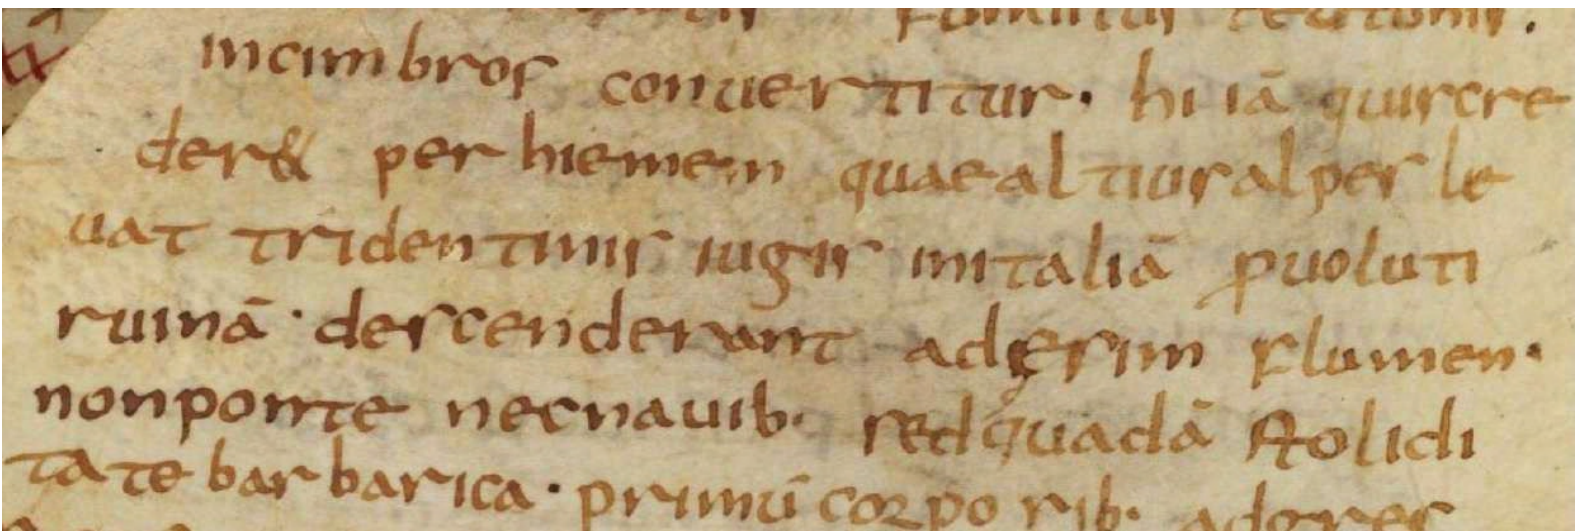 funditus teutonis.
incimbros conuertitur· hi iā quiscre
der& per hiemem quae altius alpes le
uat tridentinis iugis initaliā ꝓuoluti
ruinā· descenderant adęsim flumen·
nonponte necnauib· sedquadā stolidi
tate barbarica· primū corporib· adgres